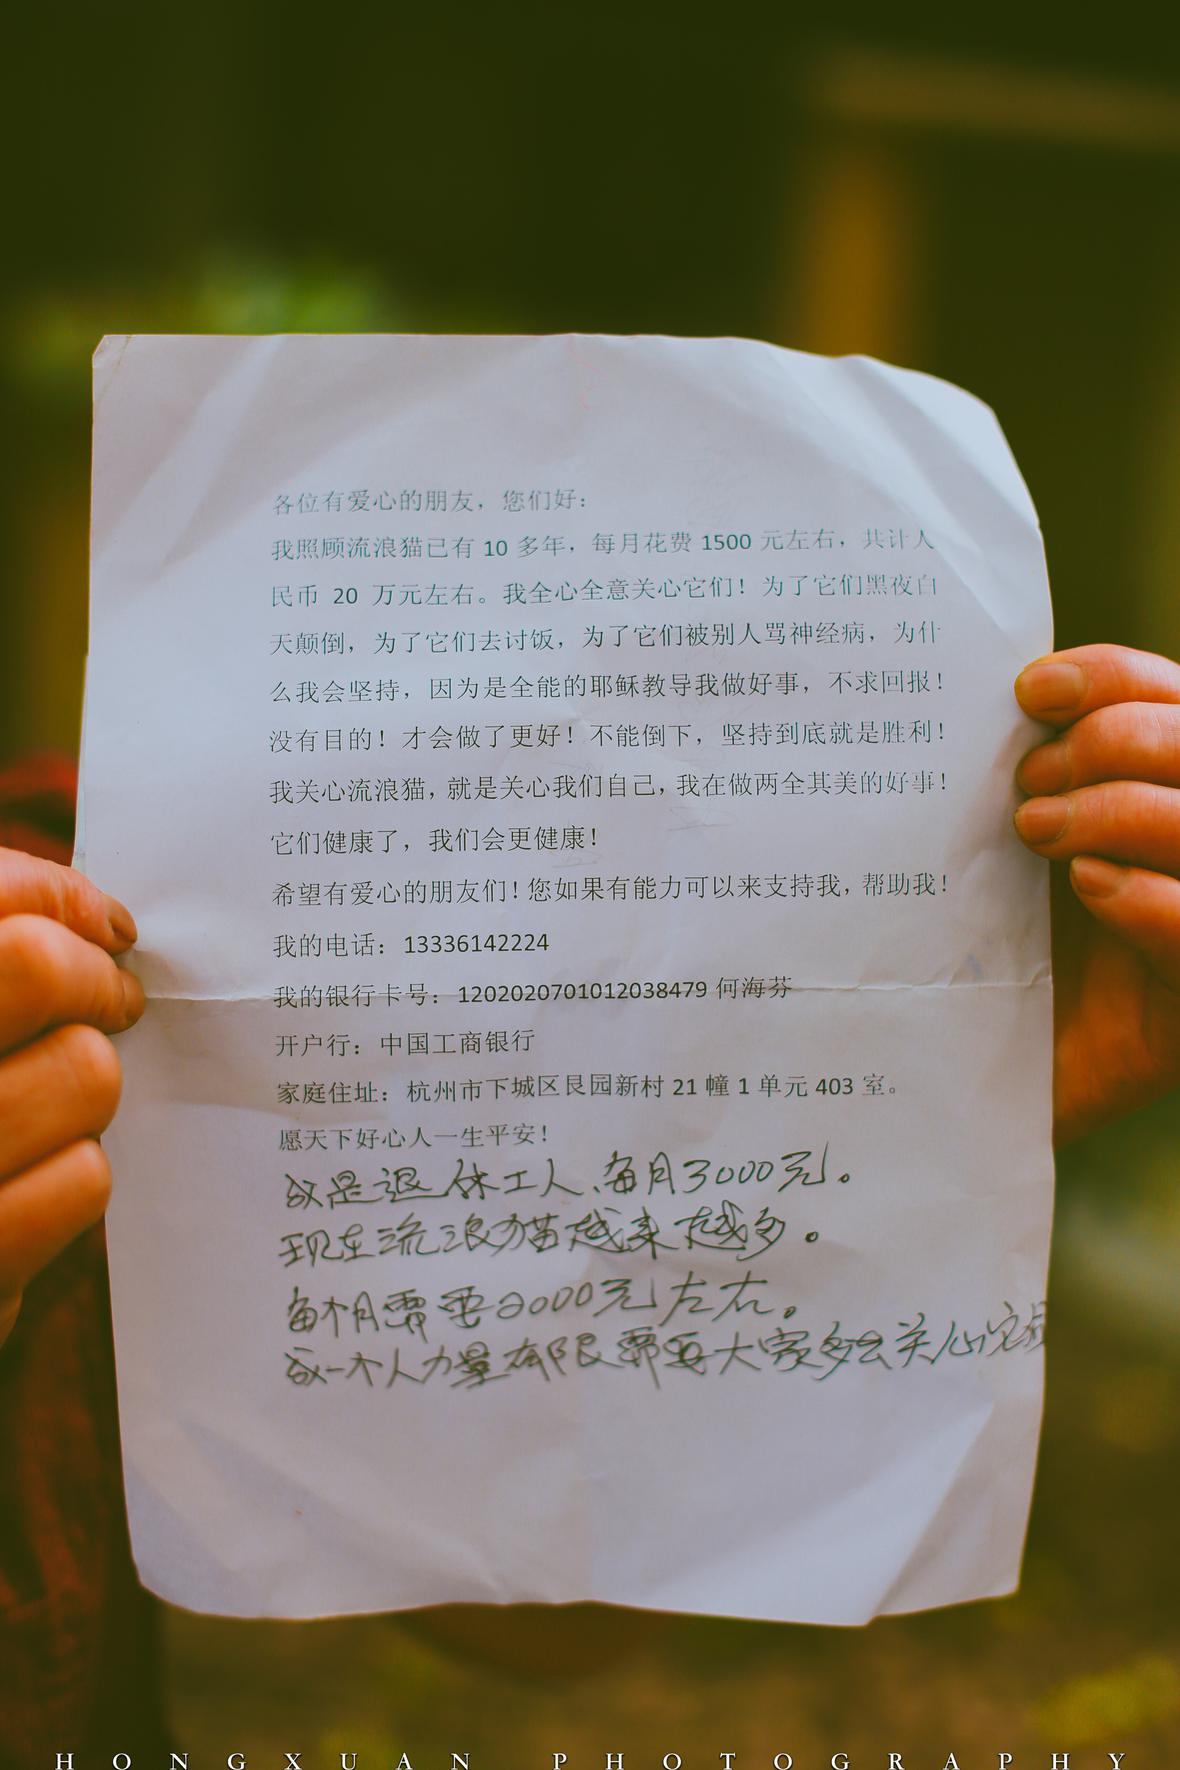 各位有爱心的朋友，您们好：
我照顾流浪猫已有 10 多年，每月花费 1500 元左右，共计人
民币 20 万元左右。我全心全意关心它们！为了它们黑夜白
天颠倒，为了它们去讨饭，为了它们被别人骂神经病，为什
么我会坚持，因为是全能的耶稣教导我做好事，不求回报！
没有目的！才会做了更好！不能倒下，坚持到底就是胜利！
我关心流浪猫，就是关心我们自己，我在做两全其美的好事！
它们健康了，我们会更健康！
希望有爱心的朋友们！您如果有能力可以来支持我，帮助我！
我的电话：13336142224
我的银行卡号：1202020701012038479 何海芬
开户行：中国工商银行
家庭住址：杭州市下城区艮园新村 21 幢 1 单元 403 室。
愿天下好心人一生平安！
我是退休工人、每月3000元。
现在流浪猫越来越多。
每个月需要2000元左右。
我一个人力量有限需要大家多去关心它
HONGXUAN PHOTOGRAPHY